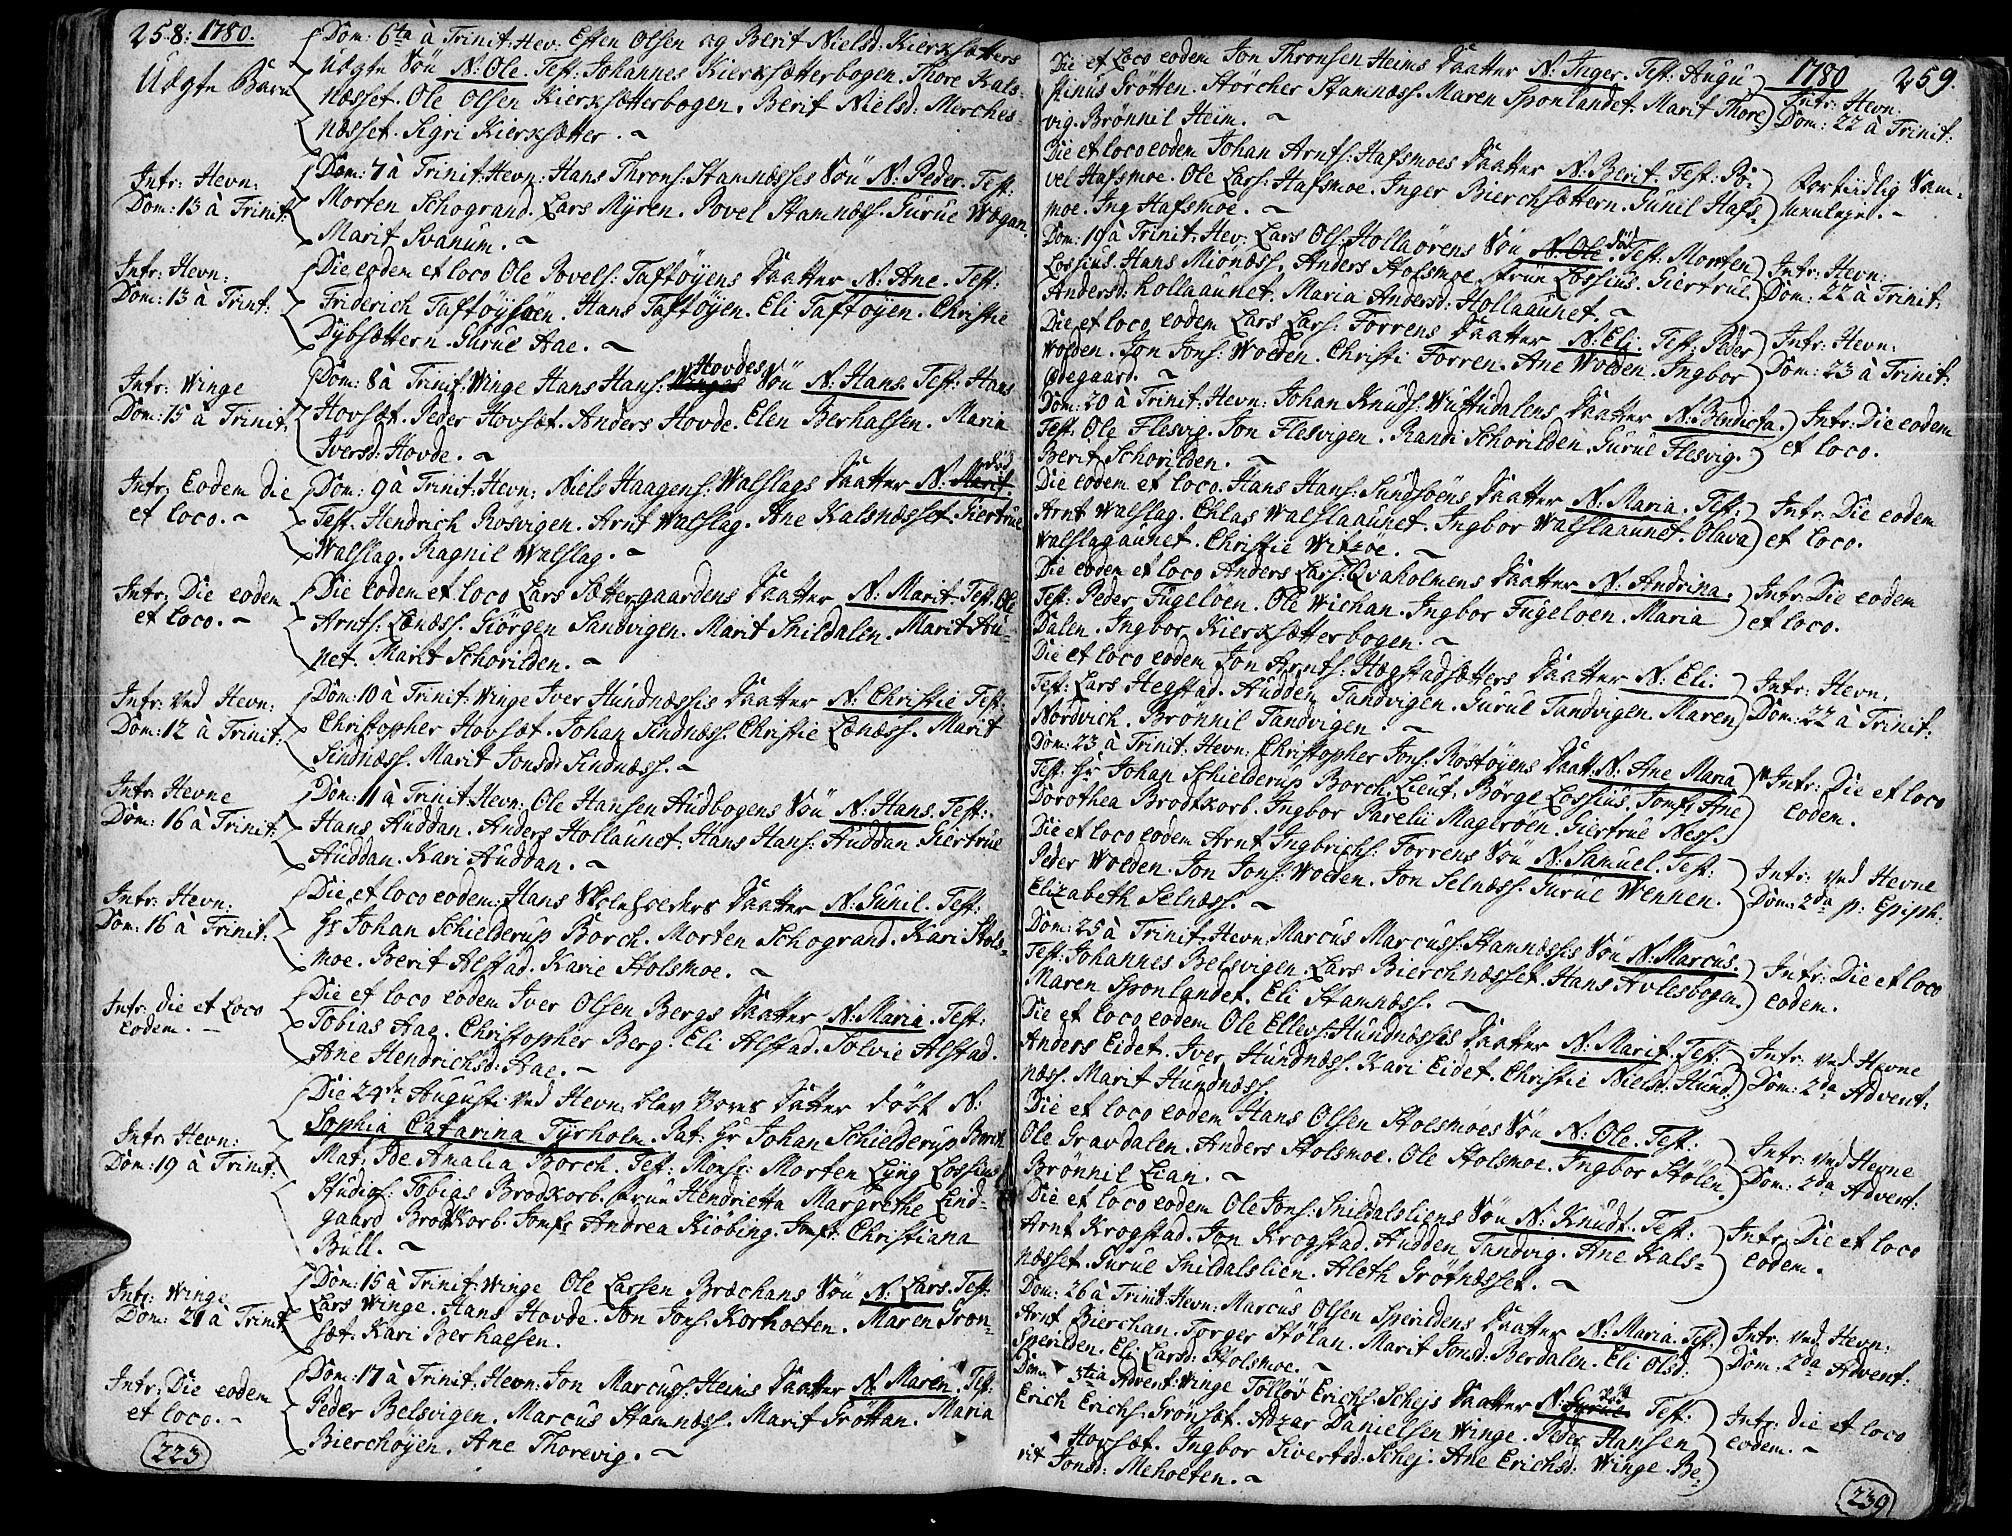 258: 1780.
Uægte Barn
Dom: 6ta à Trinit: Hev: Esten Olsen og Berit Nielsd: Kierksætters
Uægte Sön N: Ole. Test: Johannes Kierksætterbogen. Thore Kals-
næsset. Ole Olsen Kierksætterbogen. Berit Nielsd: Merches-
næsset. Sigri Kierksætter. ~
Intr: Hevn:
Dom: 13 à Trinit:
Dom: 7 à Trinit: Hevn: Hans Throns: Stamnæsses Sön N: Peder. Test:
Morten Schogrand. Lars Myren. Povel Stamnæss. Gurue Wægan.
Marit Svanum. ~
Intr: Hevn:
Dom: 13 à Trint:
Die eodem et loco Ole Povels: Taftöyens Daatter N: Ane. Test:
Friderich Taftöysøen. Hans Taftöyen. Eli Taftöyen. Christie
Dybsættern. Gurue Aae. ~
Intr: Winge
Dom: 15 à Trinit:
Dom: 8 à Trinit: Winge Hans Hans: Winges Hovdes Sön N: Hans. Test: Hans
Hovsæt. Peder Hovsæt. Anders Hovde. Elen Berhalsen. Maria
Iversd: Hovde. ~
Intr: Eodem die
et loco. ~
Dom: 9 à Trinit: Hevn: Niels Haagens: Walslags Daatter N: Marit. död
Test. Hendrich Rosvigen. Arnt Walslag. Ane Kalsnæsset. Giertrue
Walslag. Ragnil Walslag. ~
Intr: Die eodem
et loco. ~
Die eodem et loco Lars Sættergaardens Daatter N: Marit. Test. Ole
Arnts: Lenæss. Giörgen Sandvigen. Marit Snildalen. Marit Au-
net. Marit Schorilden. ~
Intr: ved Hevn:
Dom: 12 à Trinit:
Dom: 10 à Trinit: Winge Iver Hundnæssis Daatter N: Christie Test:
Christopher Hovsæt. Johan Sindnæss. Christie Lenæss. Marit
Sindnæss. Marit Jonsd: Sindnæss. ~
Intr: Hevne
Dom: 16 à Trinit:
Dom: 11 à Trinit: Hevn: Ole Hansen Audbogens Sön N: Hans. Test:
Hans Auddan. Anders Hollaunet. Hans Hans: Auddan Giertrue
Auddan. Kari Auddan. ~
Intr: Hevn:
Dom: 16 à Trinit:
Die et loco eodem: Hans Daatter N: Gunil. Test:
Hr Johan Schielderup Borch. Morten Schogrand. Kari Stols-
moe. Berit Alstad. Karie Stolsmoe. ~
Intr: die et Loco
eodem. ~
Die et loco eodem Iver Olsen Bergs Daatter N: Maria. Test:
Tobias Aae. Christopher Berg. Eli Alstad. Solvie Alstad.
Ane Hendrichsd: Aae. ~
Intr: Hevn:
Dom: 19 à Trinit:
Die 24de Augusti ved Hevn: blev Vores Datter döbt N:
Sophia Catarina Tyrholm. Pat: Hr Johan Schielderup Borch.
Mat: Ide Amalia Borch. Test: Monsr: Morten Lyng Lossius
Studios: Tobias Brodkorb. Frue Hendrietta Margrethe Lind-
gaard Brodkorb. Jomfr Andrea Kiöbing. Jomfr Christiana
Bull. ~
Intr: Winge
Dom: 21 à Trinit:
Dom: 15 à Trinit: Winge Ole Larsen Bræchans Sön N: Lars. Test:
Lars Winge. Hans Hovde. Jon Jons: Korholten. Maren Gron-
sæt. Kari Berhalsen.
Intr: Die eodem
et loco. ~
Dom: 17 à Trinit: Hevn: Jon Marcuss: Heims Daatter N: Maren. Test:
Peder Belsvigen. Marcus Stamnæss. Marit Gröttan. Maria
Bierchöyen. Ane Thorevig. ~
223
1780 259.
Die et Loco eodem Jon Thronsen Heims Daatter N: Inger. Test: Augu
stinus Grötten. Störcher Stamnæss. Maren Sponlandet. Marit Thore
vig. Brönnil Heim. ~
Intr: Hevn.
Dom: 22 à Trinit:
Die et loco eodem Johan Arnts: Hafsmoes Daatter N: Berit. Test: Po
vel Hafsmoe. Ole Lars: Hafsmoe. Inger Bierchsættern. Gunil Hafs
moe. Ing Hafsmoe. ~
Fortiidlig Sam-
menleje. ~
Dom: 19 à Trinit: Hev: Lars Ols: Hollaörens Sön N: Ole död. Test: Morten
Lossius. Hans Mionæss. Anders Stolsmoe. Frue Lossius. Giertrue
Andersd: Hollaaunet. Maria Andersd: Hollaaunet. ~
Intr: Hevn:
Dom: 22 à Trinit:
Die et loco eodem Lars Lars: Forrens Daatter N: Eli. Test: Peder
Wolden. Jon Jons: Wolden. Christi Forren. Ane Wolden. Ingbor
Ödegaard. ~
Intr: Hevn:
Dom: 23 à Trinit:
Dom: 20 à Trinit: Hevn: Johan Knuds: Wuttudalens Daatter N: Bendicta.
Test: Ole Flesvig. Jon Flesvigen. Randi Schorilden. Gurue Flesvig.
Berit Schorilden. ~
Intr: Die eodem
et loco.
Die eodem et loco. Hans Hans: Sundsoens Daatter N: Maria. Test:
Arnt Walslag. Ehlas Walslaaunet. Ingbor Walslaaunet. Olava
Walslagaunet. Christie Witsöe. ~
Intr: Die eodem
et loco.
Die eodem et loco Anders Lars: Qvaholmens Daatter N: Andrina.
Test: Peder Fugeloen. Ole Wichan. Ingbor Fugeloen. Maria
Dalen. Ingbor Kierksætterbogen. ~
Intr: Die eodem
et loco.
Die et loco eodem Jon Arnts: Hegstadsætters Daatter N: Eli.
Test: Lars Hegstad. Audden Tandvigen. Gurue Tandvigen. Maren
Nordvich. Brönnil Tandvigen. ~
Intr: Hevn.
Dom: 22 à Trinit:
Dom: 23 à Trinit: Hevn: Christopher Jons: Rostöyens Daatt: N: Ane Maria
Test: Hr Johan Schielderup Borch. Lieut: Börge Lossius. Jomfr Ane
Dorothea Brodtkorb. Ingbor Parelii Mageröen. Giertrue Ness.
Intr: Die et loco
eodem.
Die et loco eodem Arnt Ingbrichs: Forrens Sön N: Samuel. Test:
Peder Wolden. Jon Jons: Wolden. Jon Selnæss. Gurue Wennen.
Elizabeth Selnæss. ~
Intr: ved Hevne
Dom: 2da p: Epiph:
Dom: 25 à Trinit: Hevn Marcus Marcuss: Stamnæssis Sön N: Marcus.
Test: Johannes Belsvigen. Lars Bierchnæsset. Hans Avlesbogen.
Maren Sponlandet. Eli Stamnæss. ~
Intr: Die et loco
eodem.
Die et loco eodem Ole Ellevs: Hundnæssis Daatter N: Marit. Test:
Anders Eidet. Iver Hundnæss. Kari Eidet. Christie Nielsd: Hund
næss. Marit Hundnæss.
Intr: ved Hevne
Dom: 2da Advent:
Die et loco eodem Hans Olsen Stolsmoes Sön N: Ole. Test:
Ole Gravdalen. Anders Stolsmoe. Ole Stolsmoe. Ingbor Stölen.
Brönnil Lian. ~
Intr: ved Hevne
Dom: 2da Advent:
Die et loco eodem Ole Jons: Snildalsliens Sön N: Knudt. Test:
Arnt Krogstad. Jon Krogstad. Audden Tandvig. Ane Kals-
næsset. Gurue Snildalslien. Aleth Grötnæsset. ~
Intr: Die et loco
eodem.
Dom: 26 à Trinit: Hevn: Marcus Olsen Sperildens Daatter N: Maria. Test:
Arnt Bierchan. Torger Stölan. Marit Jonsd: Berdalen. Eli Olsd:
Sperilden. Eli Larsd: Stolsmoe. ~
Intr: ved Hevn:
Dom: 2da Advent:
Dom 3tia Advent: Winge Tolløv Erichs: Schejs Daatter N: Gurue död Test:
Erich Erichs: Grönsæt. Adzar Danielsen Winge. Peder Hansen
Hovsæt. Ingbor Sivertsd: Schej. Ane Erichsd: Winge. Be-
rit Jonsd: Meholten. ~
Intr: die et loco
eodem. ~
239